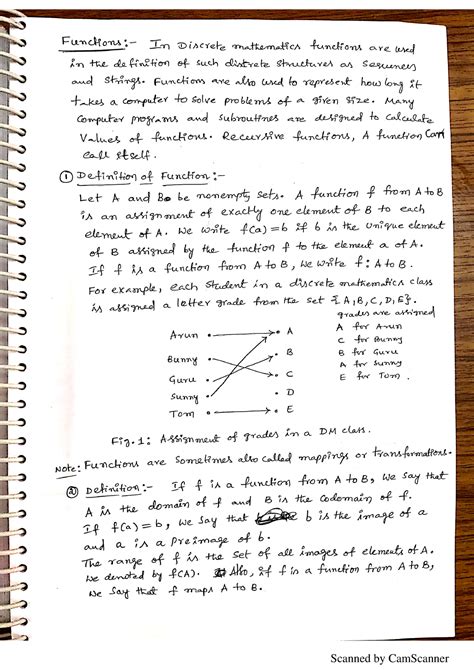 Functions:- In Discrete mathematics functions are used
in the definition of such distrete structures as Sequences
and Strings. Functions are also used to represent how long it
takes a computer to solve problems of a given size. Many
Computer programs and subroutines are designed to calculate
Values of functions. Recursive functions, A function can
call itself.
① Definition of Function:-
Let A and B be nonempty sets. A function f from A to B
is an assignment of exactly one element of B to each
element of A. We write f(a) = b if b is the unique element
of B assigned by the function f to the element a of A.
If f is a function from A to B, we write f: A to B.
For example, each student in a discrete mathematics class
is assigned a letter grade from the set {A, B, C, D, E}.
grades are assigned
Arun A A for Arun
Bunny B C for Bunny
Guru C B for Guru
Sunny D A for Sunny
Tom E E for Tom.
Fig. 1: Assignment of grades in a DM class.
Note: Functions are sometimes also called mappings or transformations.
② Definition:- If f is a function from A to B, we say that
A is the domain of f and B is the codomain of f.
If f(a) = b, we say that b is the image of a
and a is a preimage of b.
The range of f is the set of all images of elements of A.
We denoted by f(A). Also, if f is a function from A to B,
we say that f maps A to B.
Scanned by CamScanner